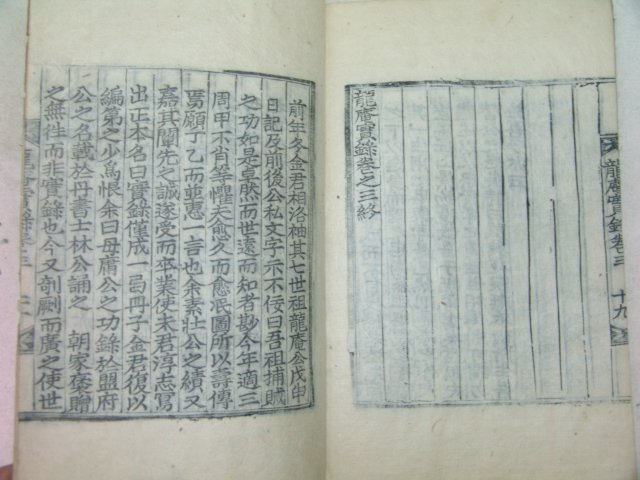 龍庵實錄卷三 十九
龍庵實錄卷之三終
前年冬金君相洛袖其七世祖龍庵公戊申
日記及前後公私文字示不佞曰吾祖捕賊
之功如是卓然而世遠而知者尠今年適三
周甲不肖等懼夫愈久而愈泯圖所以壽傳
焉願丁乙而並惠一言也余素壯公之績又
嘉其闡先之誠遂受而卒業使朱君淳志寫
出正本名曰實錄僅成一局冊子金君復以
編第之少爲恨余曰毋庸公之功錄於盟府
公之名載於丹書士林公誦之 朝家褒贈
之無往而非實錄也今又剞劂而廣之使世
實錄卷三